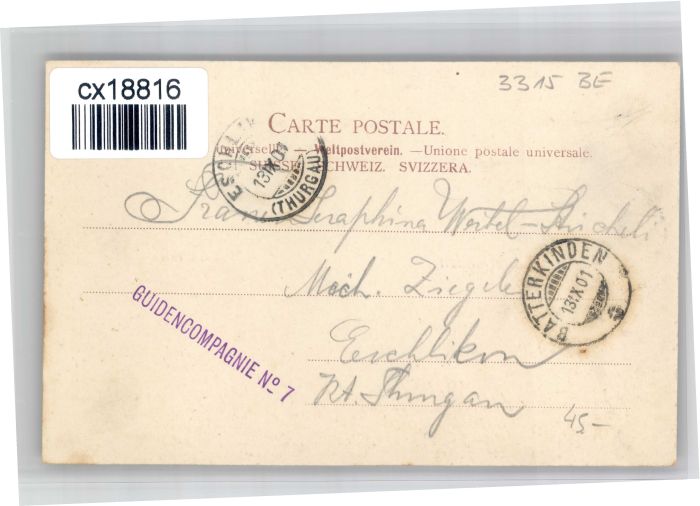 cx18816
3315 BE
CARTE POSTALE.
universelle — Weltpostverein. — Unione postale universale.
SUISSE. SCHWEIZ. SVIZZERA.
13.IX.01
(THURGAU)
Frau Seraphina
Mech. Ziegelei
Eschlikon
Kt. Thurgau
BÄTTERKINDEN
13.IX.01
GUIDENCOMPAGNIE No. 7
45.-